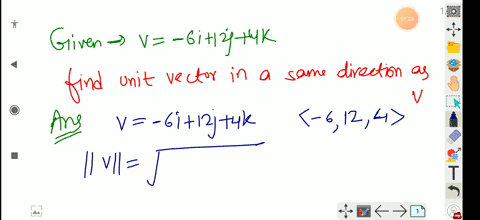 Given → v = -6i+12j+4k
find unit vector in a same direction as
v
Ans v = -6i+12j+4k <-6, 12, 4>
|| v || = √